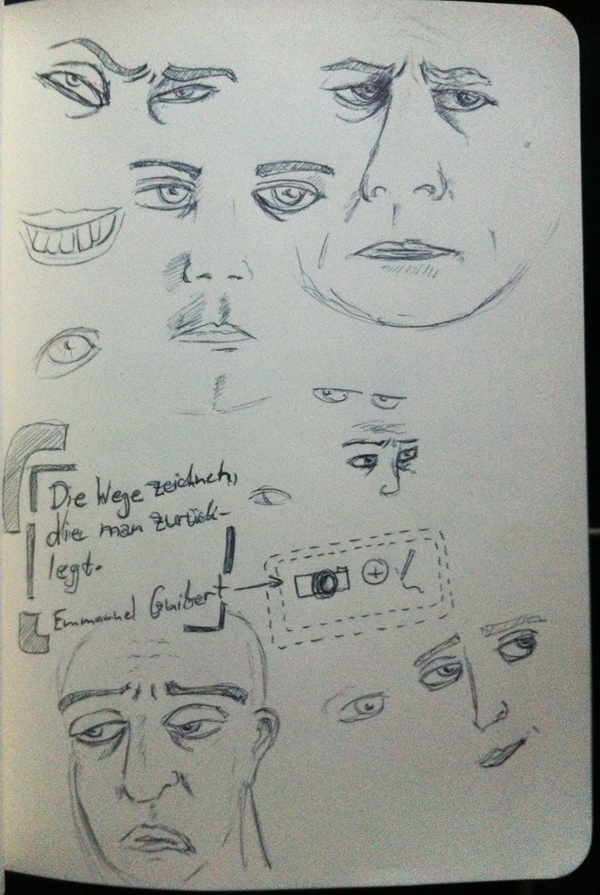 Die Wege zeichnen,
die man zurück-
legt.
Emmanuel Guibert